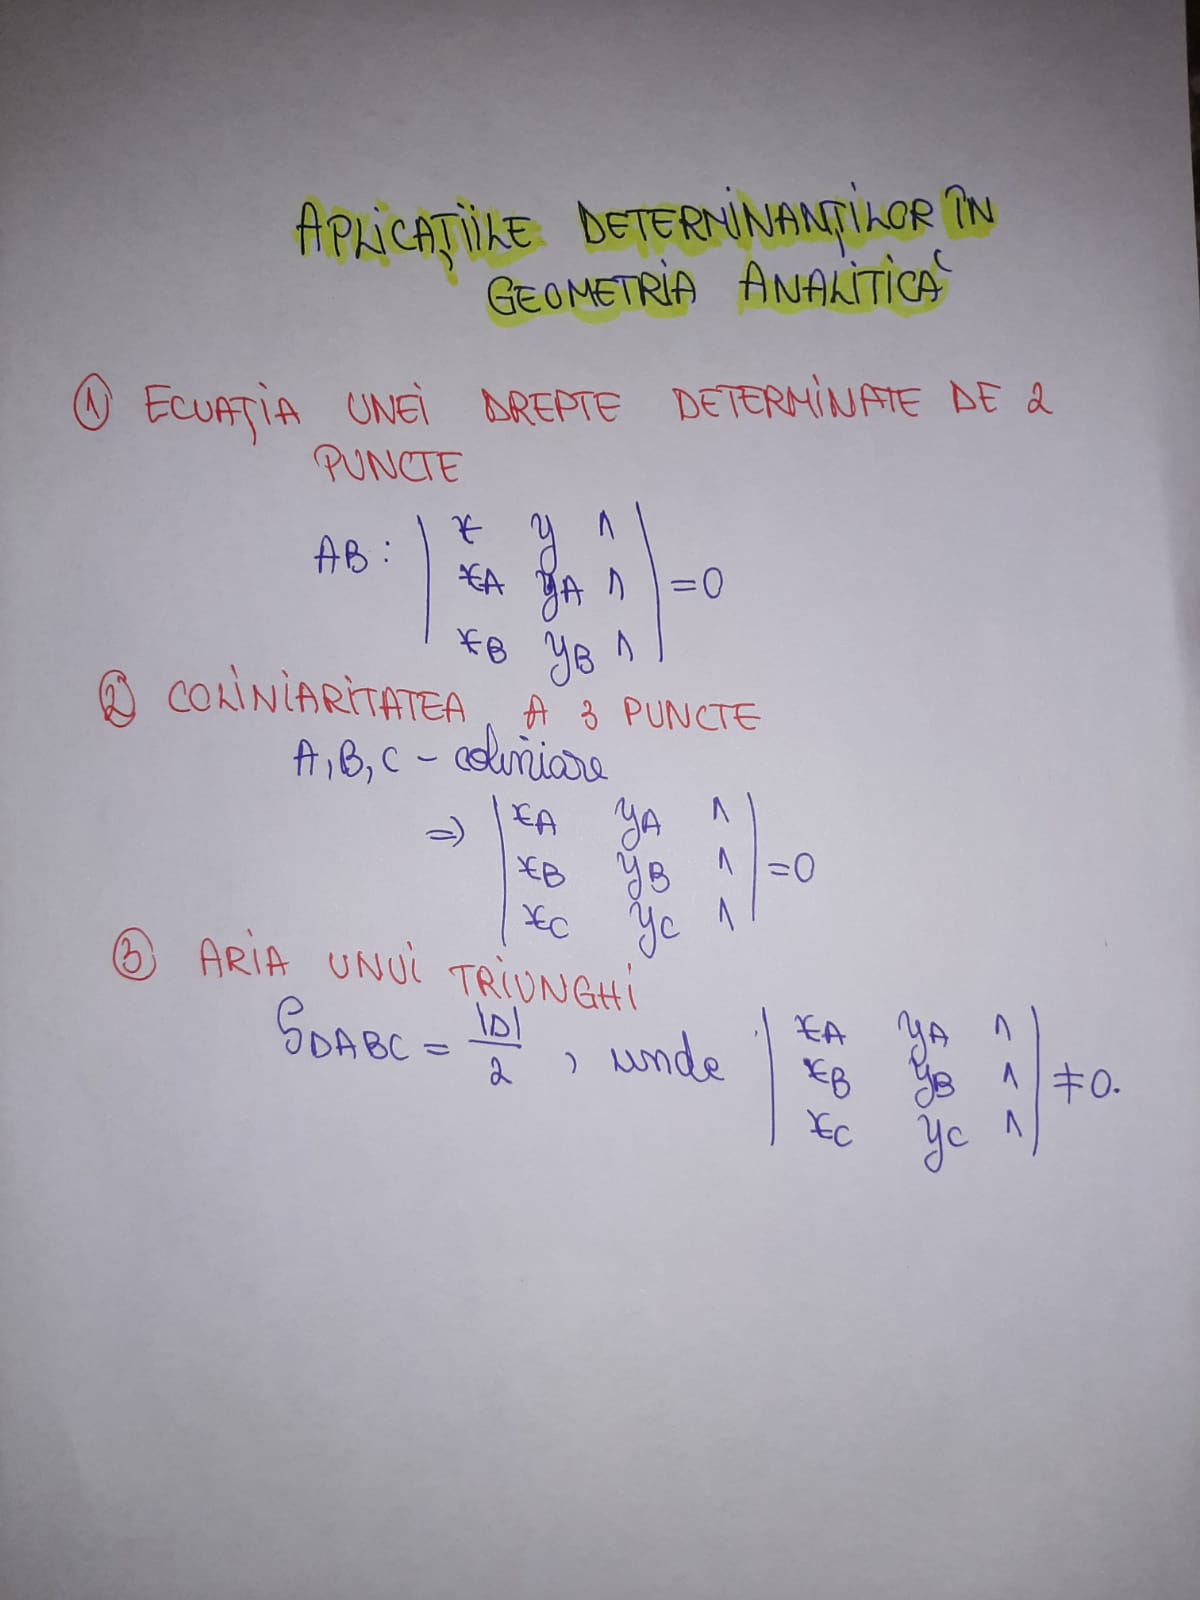 APLICAȚIILE DETERMINANȚILOR ÎN
GEOMETRIA ANALITICĂ
① ECUAȚIA UNEI DREPTE DETERMINATE DE 2
PUNCTE
AB: | x y 1 |
| xA yA 1 | = 0
| xB yB 1 |
② COLINIARITATEA A 3 PUNCTE
A, B, C - coliniare
=> | xA yA 1 |
| xB yB 1 | = 0
| xC yC 1 |
③ ARIA UNUI TRIUNGHI
SΔABC = |D|/2, unde | xA yA 1 |
| xB yB 1 | ≠ 0.
| xC yC 1 |